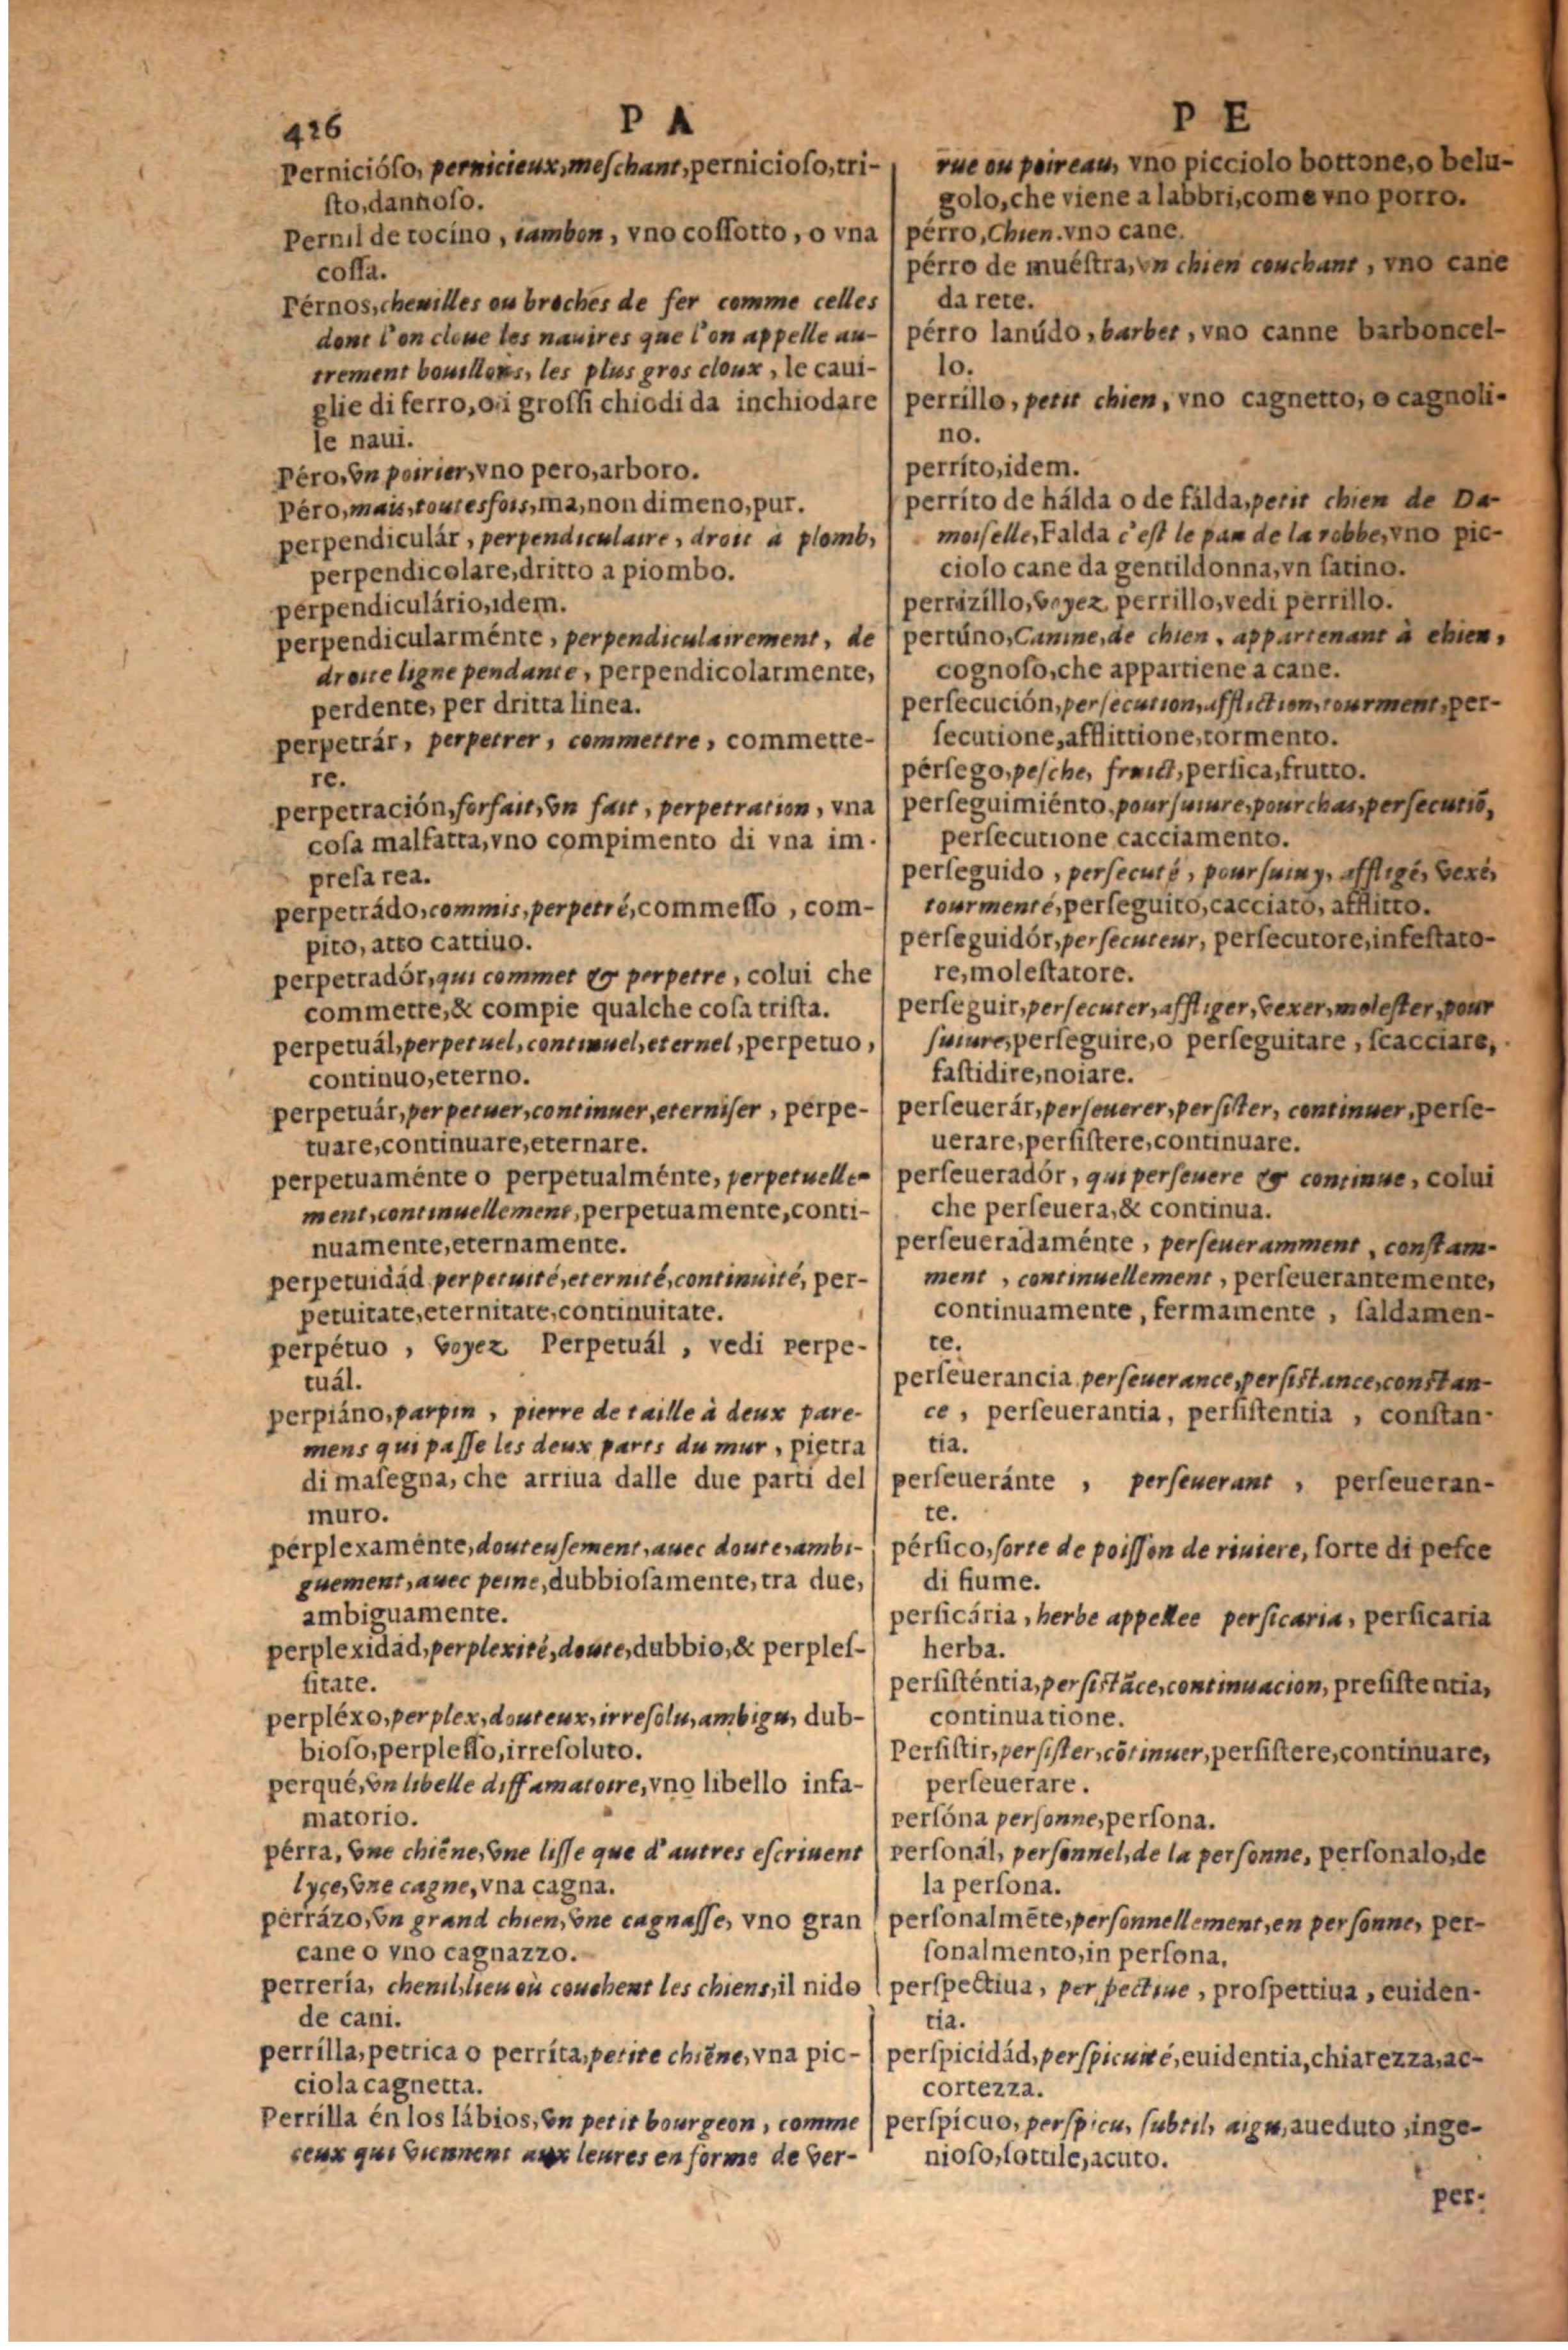 426
P A
Pernicióſo, pernicieux, meſchant, pernicioſo, tri-
ſto, dannoſo.
Pernil de tocíno, iambon, vno coſſotto, o vna
coſſa.
Pérnos, cheuilles ou broches de fer comme celles
dont l'on cloue les nauires que l'on appelle au-
trement bouillons, les plus gros cloux, le caui-
glie di ferro, o i groſſi chiodi da inchiodare
le naui.
Péro, vn poirier, vno pero, arboro.
Péro, mais, toutesfois, ma, non dimeno, pur.
perpendiculár, perpendiculaire, droit à plomb,
perpendicolare, dritto a piombo.
perpendiculário, idem.
perpendicularménte, perpendiculairement, de
droite ligne pendante, perpendicolarmente,
perdente, per dritta linea.
perpetrár, perpetrer, commettre, commette-
re.
perpetración, forfait, vn fait, perpetration, vna
coſa malfatta, vno compimento di vna im-
preſa rea.
perpetrádo, commis, perpetré, commeſſo, com-
pito, atto cattiuo.
perpetradór, qui commet & perpetre, colui che
commette, & compie qualche coſa triſta.
perpetuál, perpetuel, continuel, eternel, perpetuo,
continuo, eterno.
perpetuár, perpetuer, continuer, eterniſer, perpe-
tuare, continuare, eternare.
perpetuaménte o perpetualménte, perpetuelle-
ment, continuellement, perpetuamente, conti-
nuamente, eternamente.
perpetuidád perpetuité, eternité, continuité, per-
petuitate, eternitate, continuitate.
perpétuo, voyez Perpetuál, vedi perpe-
tuál.
perpiáno, parpin, pierre de taille à deux pare-
mens qui paſſe les deux parts du mur, pietra
di maſegna, che arriua dalle due parti del
muro.
perplexaménte, douteuſement, auec doute, ambi-
guement, auec peine, dubbioſamente, tra due,
ambiguamente.
perplexidád, perplexité, doute, dubbio, & perpleſ-
ſitate.
perpléxo, perplex, douteux, irreſolu, ambigu, dub-
bioſo, perpleſſo, irreſoluto.
perqué, vn libelle diffamatoire, vno libello infa-
matorio.
pérra, vne chiēne, vne liſſe que d'autres eſcriuent
lyce, vne cagne, vna cagna.
perrázo, vn grand chien, vne cagnaſſe, vno gran
cane o vno cagnazzo.
perrería, chenil, lieu où couchent les chiens, il nido
de cani.
perrílla, petrica o perríta, petite chiēne, vna pic-
ciola cagnetta.
Perrílla én los lábios, vn petit bourgeon, comme
ceux qui viennent aux leures en forme de ver-
P E
rue ou poireau, vno picciolo bottone, o belu-
golo, che viene a labbri, come vno porro.
pérro, Chien. vno cane.
pérro de muéſtra, vn chien couchant, vno cane
da rete.
pérro lanúdo, barbet, vno canne barboncel-
lo.
perríllo, petit chien, vno cagnetto, o cagnoli-
no.
perríto, idem.
perríto de hálda o de fálda, petit chien de Da-
moiſelle, Falda c'eſt le pan de la robbe, vno pic-
ciolo cane da gentildonna, vn ſatino.
perrizíllo, voyez perrillo, vedi perrillo.
perrúno, Canine, de chien, appartenant à chien,
cognoſo, che appartiene a cane.
perſecución, perſecution, affliction, tourment, per-
ſecutione, afflittione, tormento.
pérſego, peſche, fruict, perſica, frutto.
perſeguimiénto, pourſuiure, pourchas, perſecutiō,
perſecutione cacciamento.
perſeguido, perſecuté, pourſuiuy, affligé, vexé,
tourmenté, perſeguito, cacciato, afflitto.
perſeguidór, perſecuteur, perſecutore, infeſtato-
re, moleſtatore.
perſeguir, perſecuter, affliger, vexer, moleſter, pour
ſuiure, perſeguire, o perſeguitare, ſcacciare,
faſtidire, noiare.
perſeuerár, perſeuerer, perſiſter, continuer, perſe-
uerare, perſiſtere, continuare.
perſeueradór, qui perſeuere & continue, colui
che perſeuera, & continua.
perſeueradaménte, perſeueramment, conſtam-
ment, continuellement, perſeuerantemente,
continuamente, fermamente, ſaldamen-
te.
perſeuerancia perſeuerance, perſiſtance, conſtan-
ce, perſeuerantia, perſiſtentia, conſtan-
tia.
perſeueránte, perſeuerant, perſeueran-
te.
pérſico, ſorte de poiſſon de riuiere, ſorte di peſce
di fiume.
perſicária, herbe appellee perſicaria, perſicaria
herba.
perſiſténtia, perſiſtāce, continuacion, preſiſtentia,
continuatione.
Perſiſtir, perſiſter, cōtinuer, perſiſtere, continuare,
perſeuerare.
perſóna perſonne, perſona.
perſonál, perſonnel, de la perſonne, perſonalo, de
la perſona.
perſonalmēte, perſonnellement, en perſonne, per-
ſonalmento, in perſona.
perſpectiua, perſpectiue, proſpettiua, euiden-
tia.
perſpicidád, perſpicuité, euidentia, chiarezza, ac-
cortezza.
perſpícuo, perſpicu, ſubtil, aigu, aueduto, inge-
nioſo, ſottile, acuto.
per-